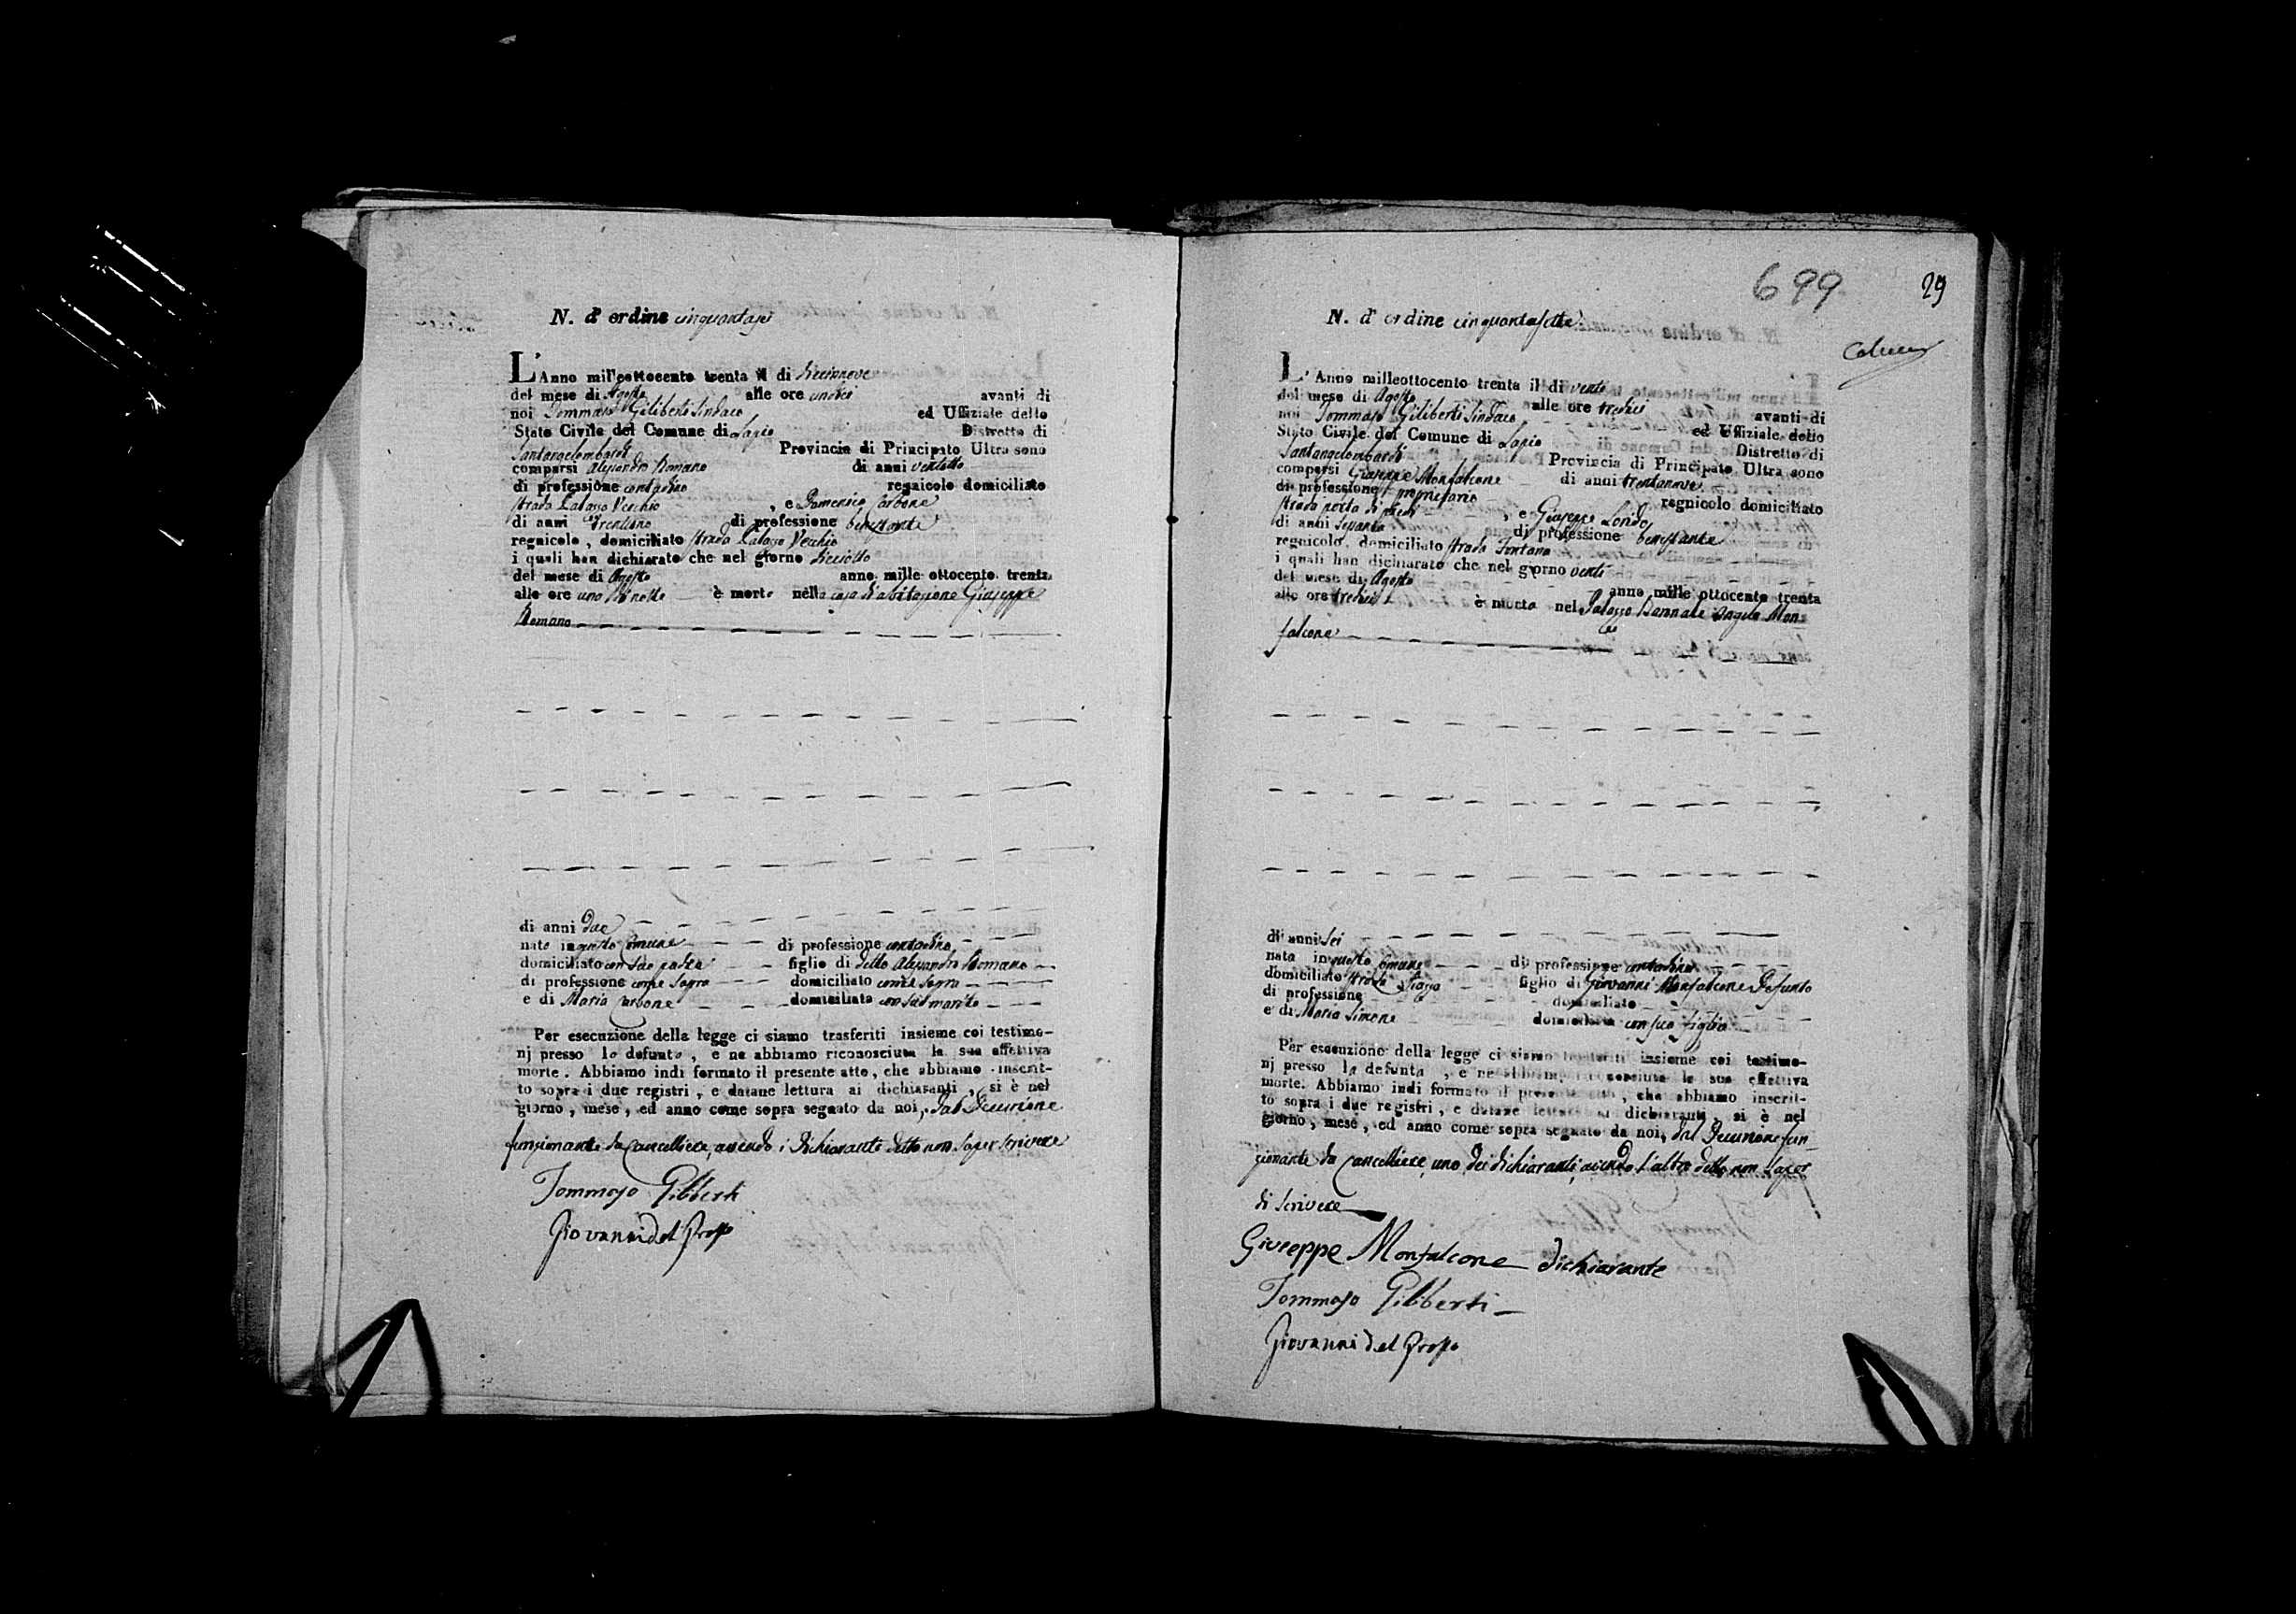 N. d' ordine cinquantasei
L'Anno mill'eottocento trenta il di diecianove
del mese di Agosto alle ore undici avanti di
noi Tommaso Giliberti Sindaco ed Uffiziale dello
Stato Civile del Comune di Lapio Distretto di
Santangelombardi Provincia di Principato Ultra sono
comparsi Alesandro Romano di anni ventotto
di professione contadino regnicolo domiciliato
strada Palazzo Vecchio , e Domenico Carbone
di anni trentuno di professione benestante
regnicolo , domiciliato strada Palazzo Vecchio
i quali han dichiarato che nel giorno dieciotto
del mese di Agosto anno mille ottocento trenta
alle ore una di notte è morto nella casa d'abitazione Giuseppe
Romano
di anni due
nato in questo Comune di professione contadino
domiciliato con suo padre figlio di detto Alesandro Romano
di professione come sopra domiciliato come sopra
e di Maria Carbone domiciliata con suo marito
Per esecuzione della legge ci siamo trasferiti insieme coi testimo-
nj presso lo defunto , e ne abbiamo riconosciuta la sua effettiva
morte . Abbiamo indi formato il presente atto , che abbiamo inscrit-
to sopra i due registri , e datane lettura ai dichiaranti , si è nel
giorno , mese , ed anno come sopra segnato da noi, dal Decurione
funzionante da Cancelliere, avendo i dichiaranti detto non saper scrivere
Tommaso Giliberti
Giovanni del Prossi
699
29
N. d' ordine cinquantasette
L' Anno milleottocento trenta il di venti
del mese di Agosto alle ore tredici avanti di
noi Tommaso Giliberti Sindaco ed Uffiziale dello
Stato Civile del Comune di Lapio Distretto di
Santangelombardi Provincia di Principato Ultra sono
comparsi Giuseppe Monfalcone di anni trentanove
di professione proprietario regnicolo domiciliato
strada porta di piedi , e Giuseppe Lorido
di anni sessanta di professione benestante
regnicolo, domiciliato strada Fontana
i quali han dichiarato che nel giorno venti
del mese di Agosto anno mille ottocento trenta
alle ore tredici è morta nel Palazzo Baronale Angela Mon-
falcone
di anni sei
nata in questo Comune di professione contadina
domiciliata strada Piazza figlia di Giovanni Monfalcone Defunto
di professione domiciliato
e di Maria Simone domiciliata con suo figlio
Per esecuzione della legge ci siamo trasferiti insieme coi testimo-
nj presso la defunta , e ne abbiamo riconosciuta la sua effettiva
morte. Abbiamo indi formato il presente atto , che abbiamo inscrit-
to sopra i due registri , e datane lettura ai dichiaranti , si è nel
giorno , mese , ed anno come sopra segnato da noi, dal Decurione fun
zionante da Cancelliere, uno dei dichiaranti, avendo l'altro detto non saper
di scrivere
Giuseppe Monfalcone dichiarante
Tommaso Giliberti
Giovanni del Prossi